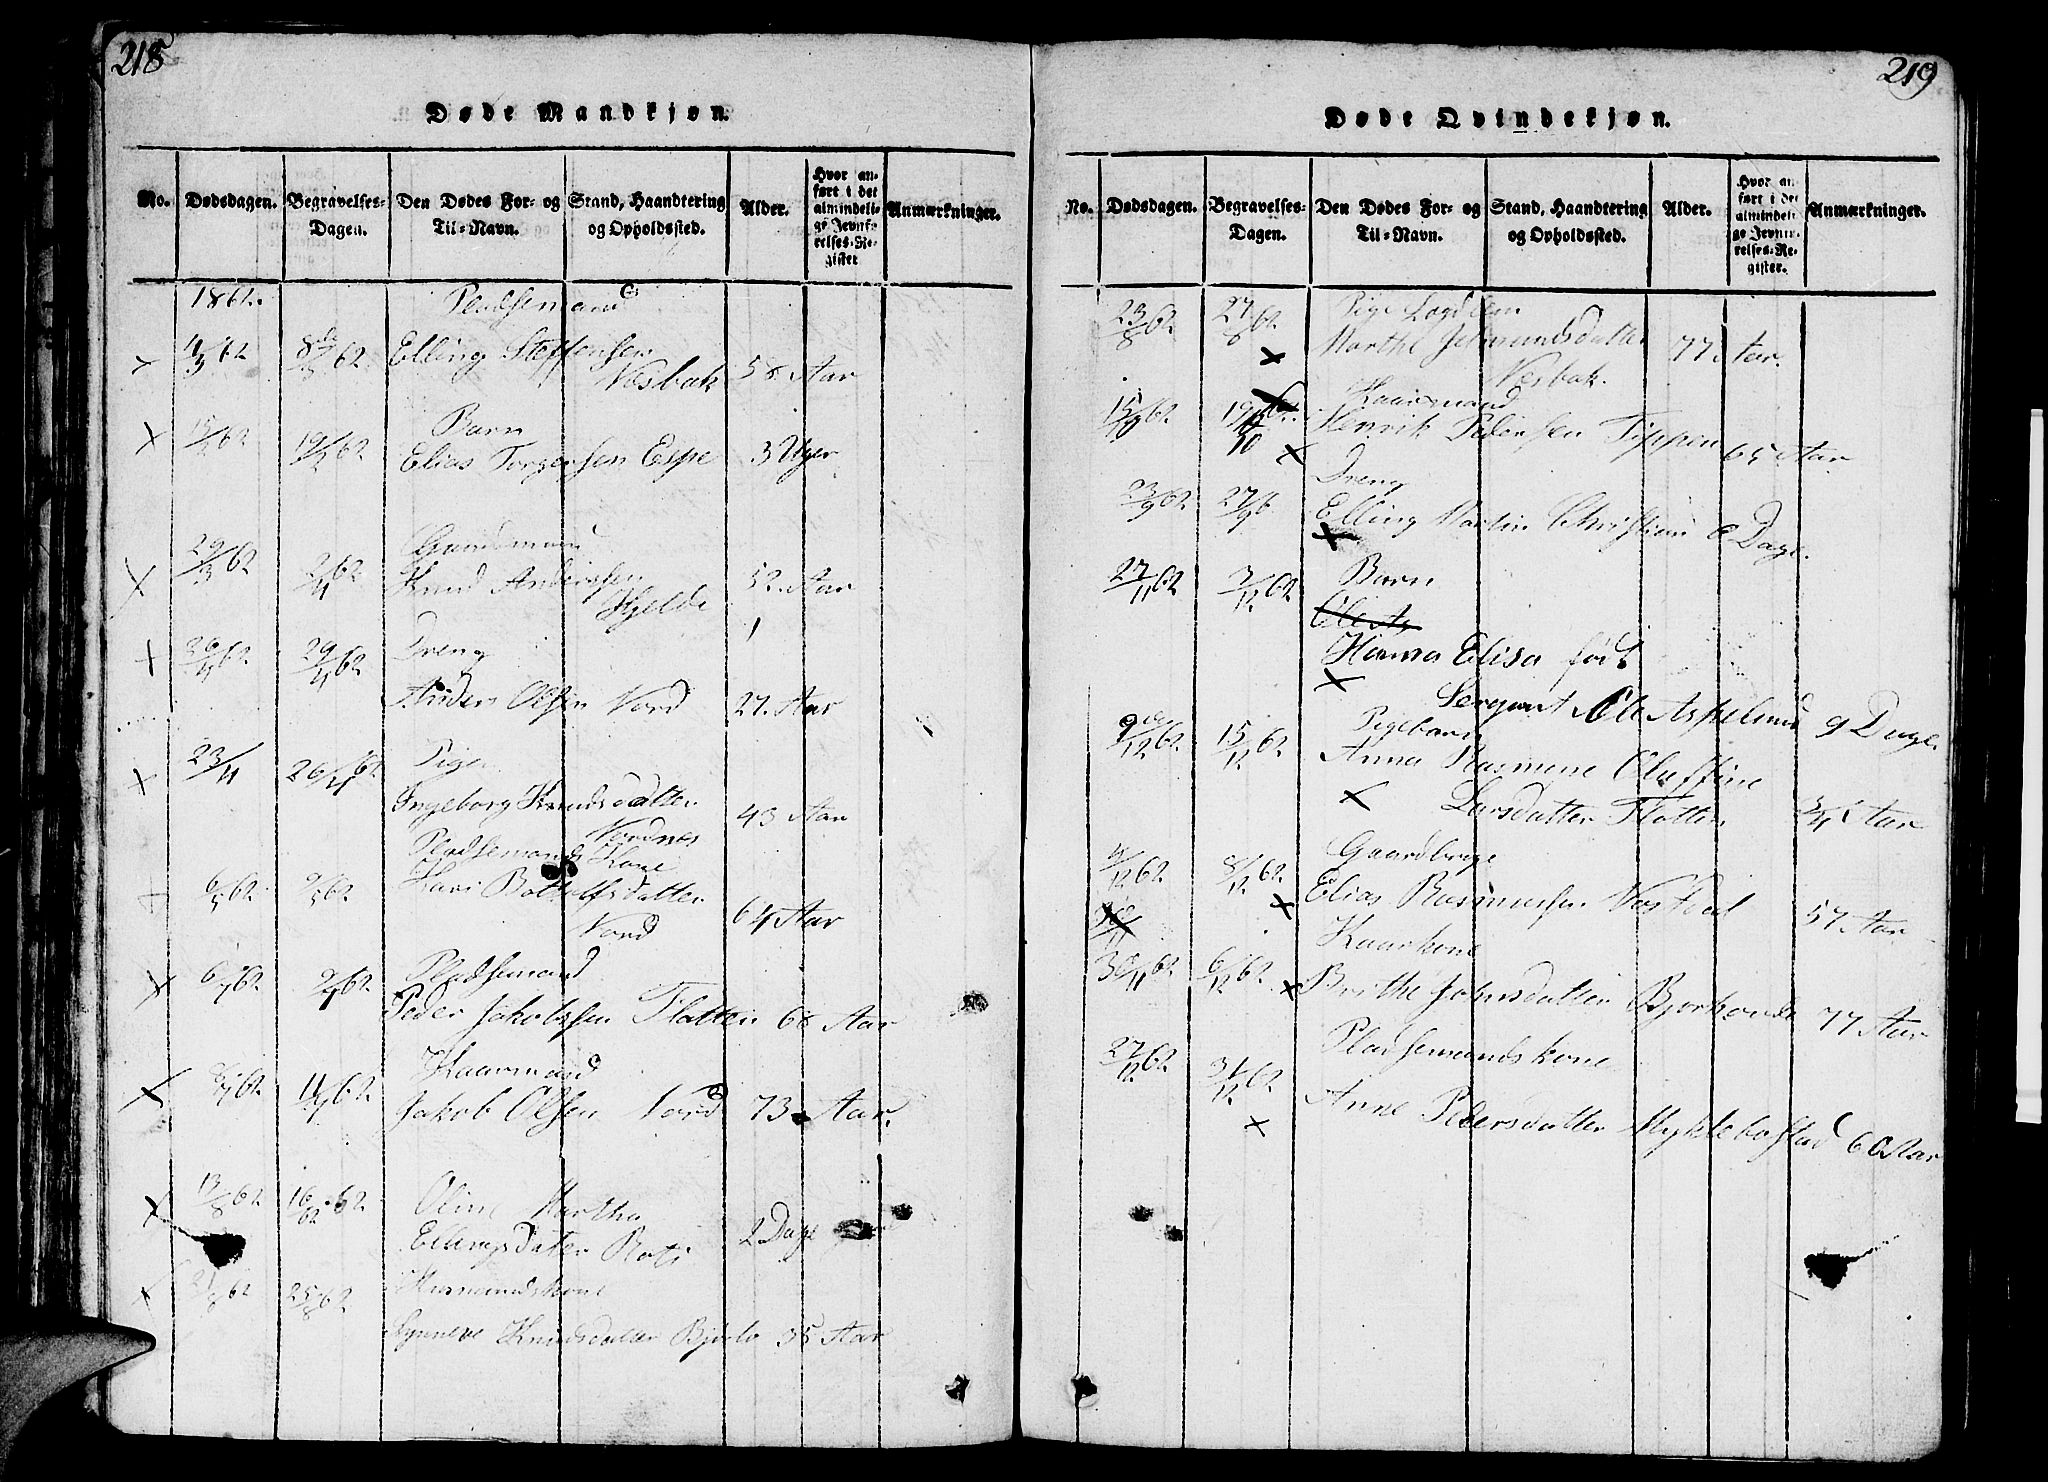 218
Døde Mandkjøn.
No. Dødsdagen. Begravelses-Dagen. Den Dødes For- og Til-Navn. Stand, Haandtering og Opholdssted. Alder. Hvor anført i det almindelige Jevnførelses-Register Anmærkninger.
1862. Pladsemand
4/3 62 8de/3 62 Elling Steffensen
Næsbak 58 Aar
Barn
15/4 62 19/4 62 Elias Torgersen Espe 3 Uger
Gaardmand
29/3 62 2/4 62 Knud Anderssen 52 Aar
Hjelde
26/4 62 29/4 62 Dreng
Anders Olsen Nord 27. Aar
23/4 26/4 62 Pige
Ingeborg Knudsdatter 43 Aar
Nordnes
Pladsemands Kone
6/5 62 9/5 62 Kari Bottolfsdatter 64 Aar
Nord
6/7 62 9/7 62 Pladsemand
Peder Jakobssen Flatten 68 Aar
Kaarmand
8/7 62 11/7 62 Jakob Olsen Nord 73 Aar.
13/8 62 16/62 62 Oline Martha
Ellingsdatter Roti 2 Dage
21/8 62 25/8 62 Husmandskone
Synneve Knudsdatter Bjørlo 35 Aar
219
Døde Qvindekjøn.
No. Dødsdagen. Begravelses-Dagen. Den Dødes For- og Til-Navn. Stand, Haandtering og Opholdssted. Alder. Hvor anført i det almindelige Jevnførelses-Register. Anmærkninger.
23/8 62 27/8 62 Pige Lægdlem
Marthe Jetmundsdatter 77. Aar.
Næsbak.
Kaarmand
15/10 62 19/10 Henrik Pedersen Tippen 65 Aar
Dreng
23/9 62 27/9 6 Elling Martin Christian 8 Dage.
27/11 62 3/12 62 Barn
Hanna Elisa født
Sergeant Ole Aspelund 9 Dage.
9de/12 62 15/12 62 Pigebarn
Anna Rasmine Oluffine
Larsdatter Flatten 3/4 Aar
Gaardbruge
4/12 62 8/12 62 Elias Rasmussen Næstdal 57 Aar
Kaarkone
30/11 62 6/12 62 Brithe Johnsdatter Bjorhovde 77 Aar
27/12 62 31/12 62 Pladsemandskone
Anne Pedersdatter Myklebostad 60 Aar